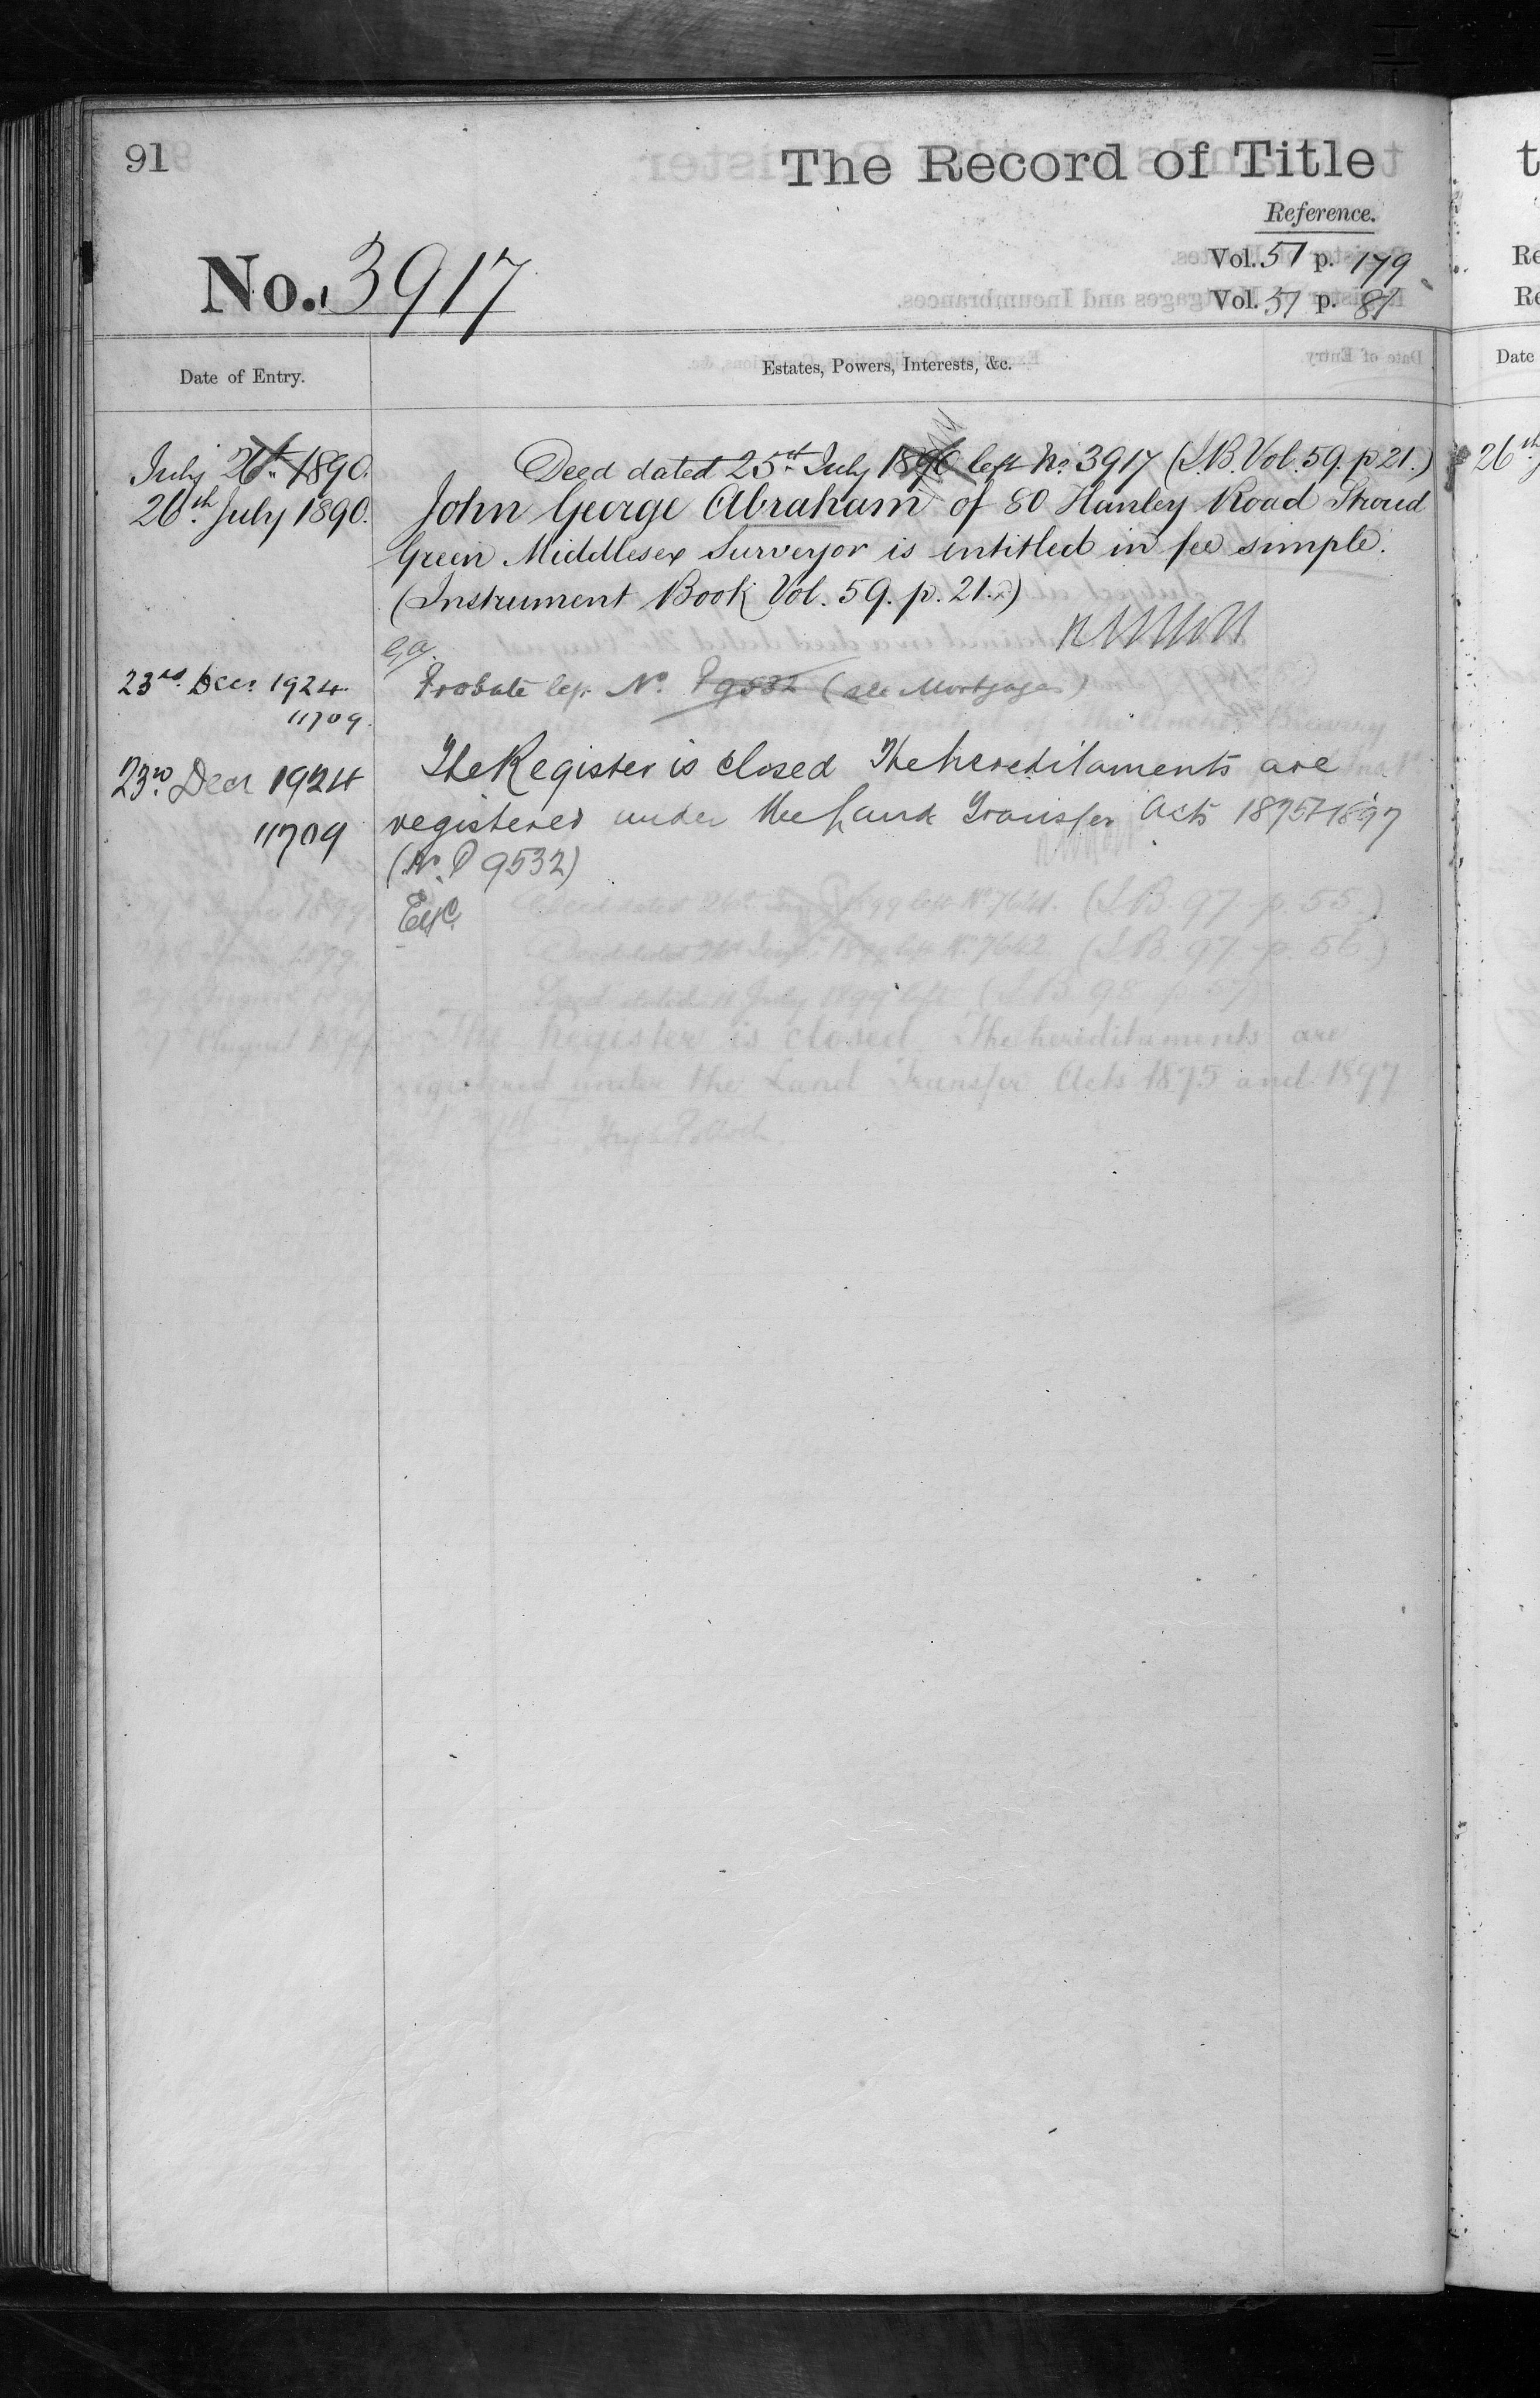 91
The Record of Title
Reference.
No. 3917
Vol. 51 p. 179
Vol. 51 p. 81
Date of Entry.
Estates, Powers, Interests, &c.
July 26th 1890.
Deed dated 25th July 1890 left No. 3917 (I.B. Vol. 59. p 21.)
26th July 1890.
John George Abraham of 80 Hanley Road Stroud
Green Middlesex Surveyor is intitled in fee simple.
(Instrument Book Vol. 59. p. 21.)
23rd Decr 1924
Probate left No. P 9532 (see Mortgages)
11709.
23rd Decr 1924
The Register is closed The hereditaments are
11709
registered under the Land Transfer Acts 1875 & 1897
(No. P 9532)
t
Re
Re
Date
26th J